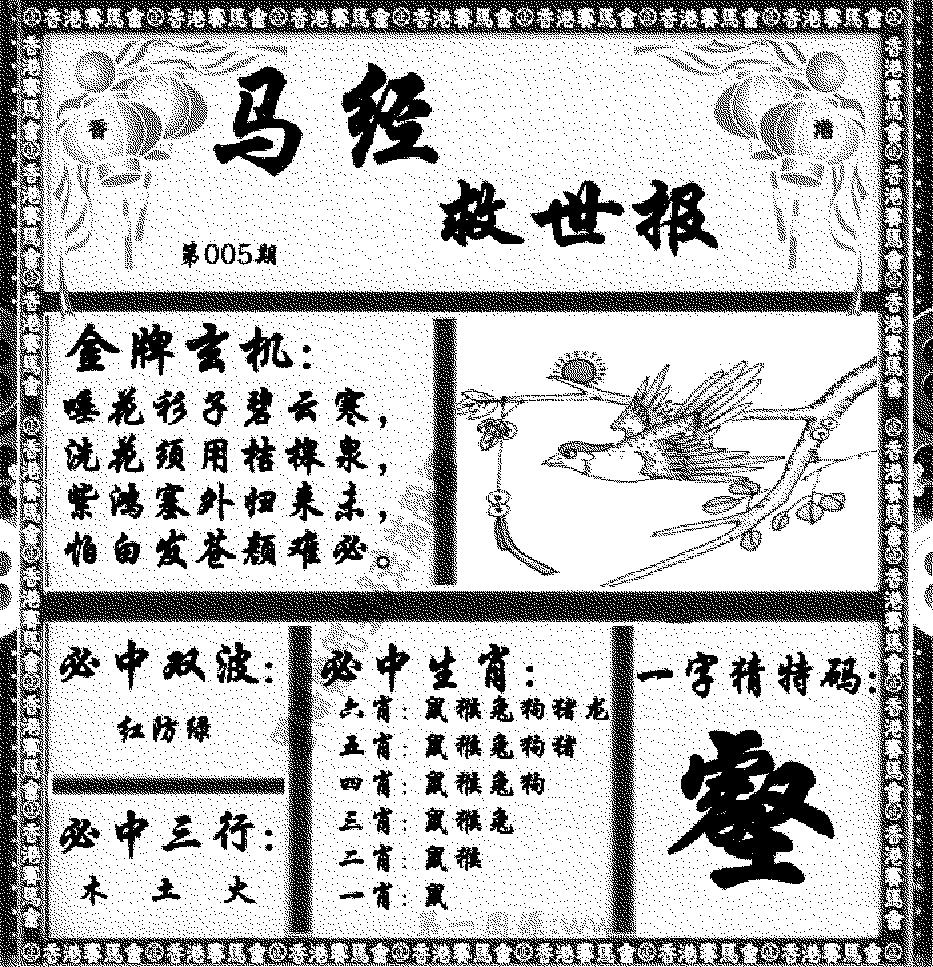 香港賽馬會 香港賽馬會 香港賽馬會 香港賽馬會 香港賽馬會 香港賽馬會 香港賽馬會
香
港
马经
救世报
第005期
金牌玄机:
唾花彩子碧云寒,
洗花须用桔槔泉,
紫鸿塞外归来未,
怕白发苍颜难必。
必中双波:
红防绿
必中三行:
木 土 火
必中生肖:
六肖:鼠猴兔狗猪龙
五肖:鼠猴兔狗猪
四肖:鼠猴兔狗
三肖:鼠猴兔
二肖:鼠猴
一肖:鼠
一字猜特码:
壑
香港賽馬會 香港賽馬會 香港賽馬會 香港賽馬會 香港賽馬會 香港賽馬會 香港賽馬會